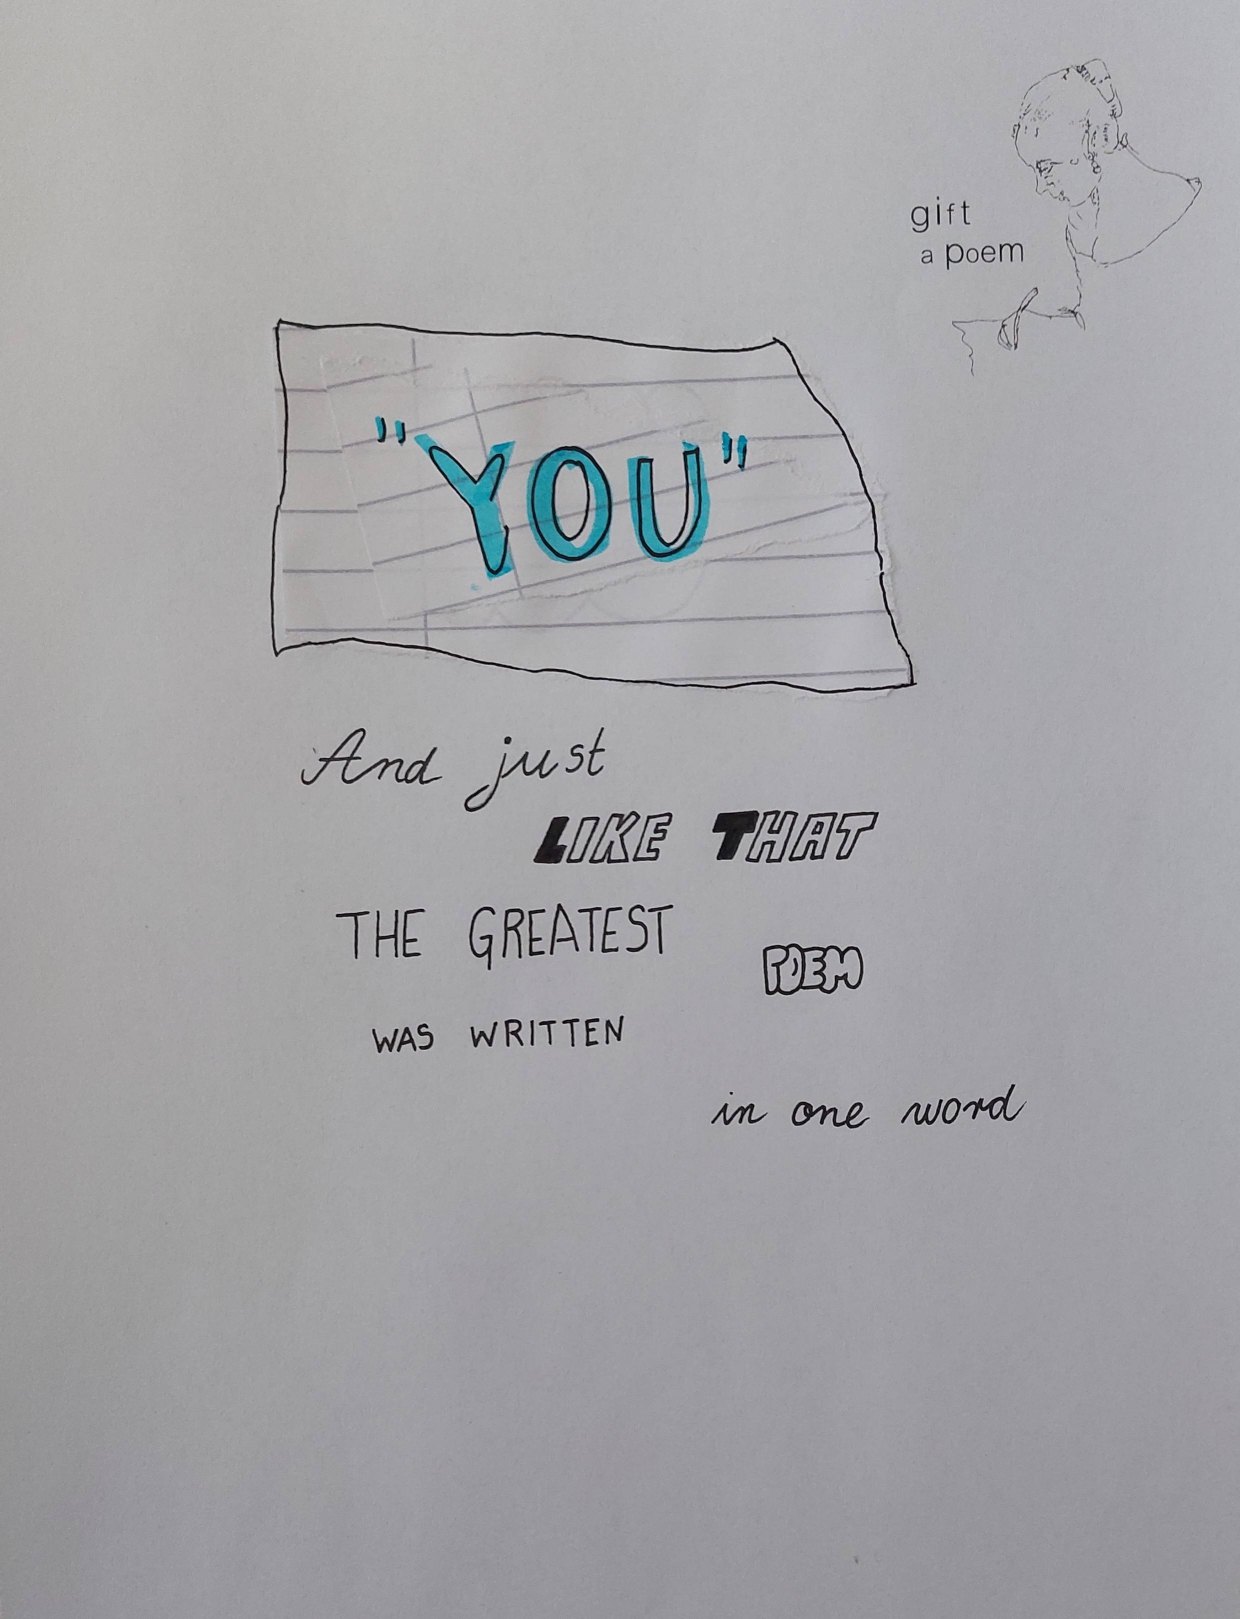 gift
a poem
"YOU"
And just
LIKE THAT
THE GREATEST
POEM
WAS WRITTEN
in one word